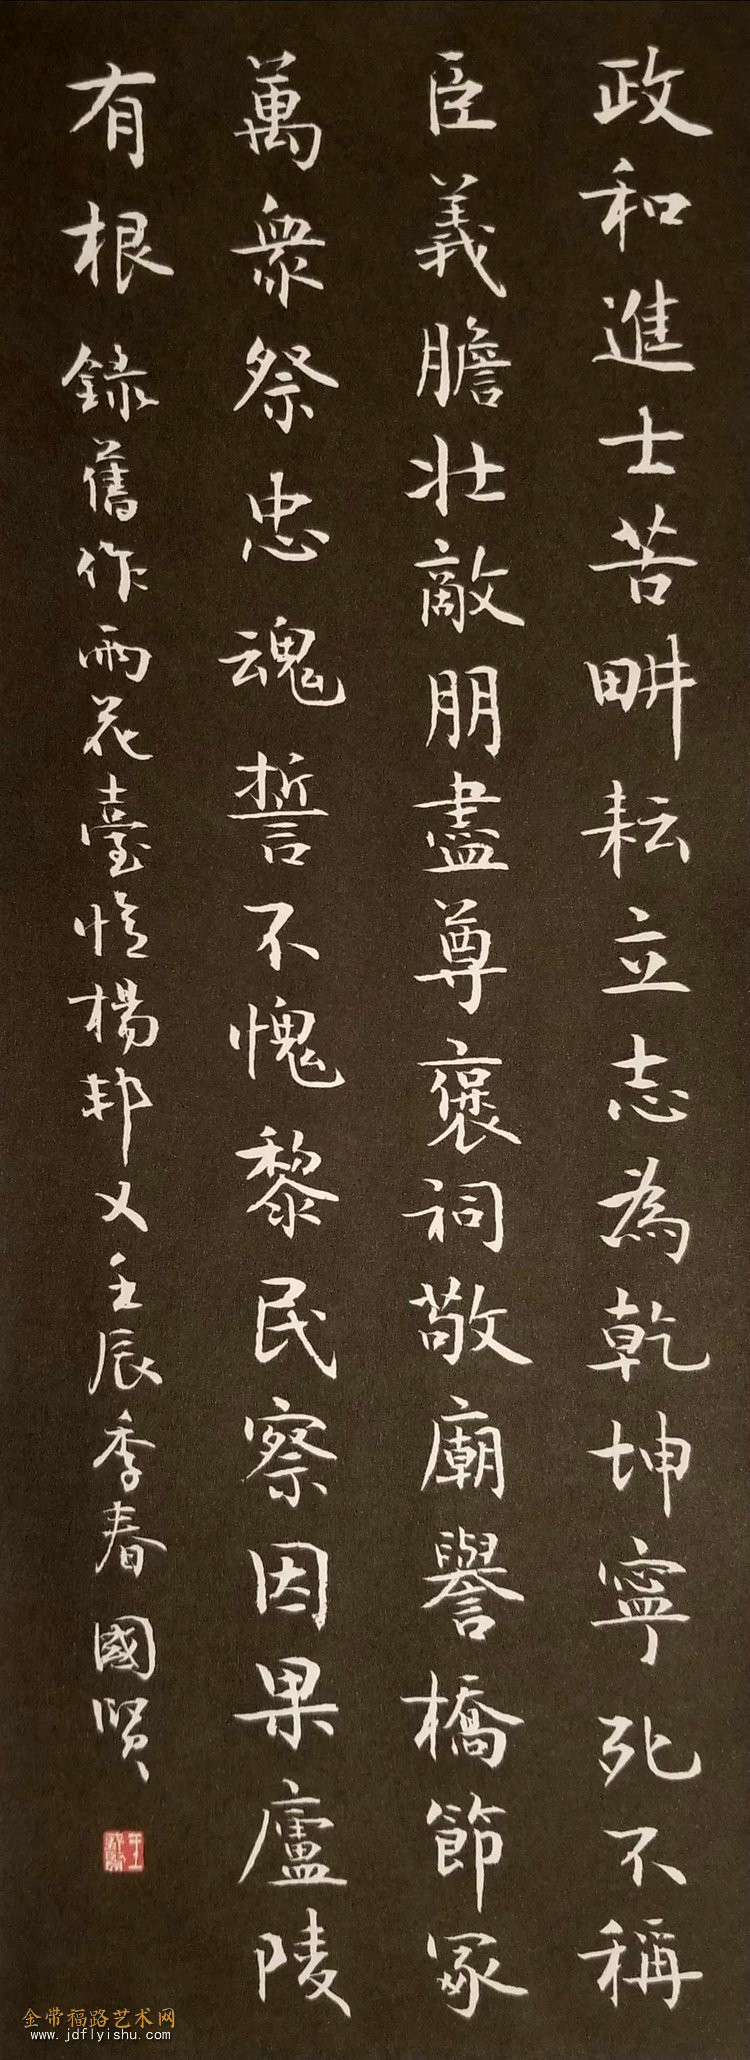 政和進士苦畊耘立志為乾坤寧死不稱
臣義膽壯敵朋盡尊褒祠敬廟譽橋節冢
萬衆祭忠魂誓不愧黎民察因果廬陵
有根錄舊作雨花臺憶楊邦乂壬辰季春國賢
金带福路艺术网
www.jdflyishu.com